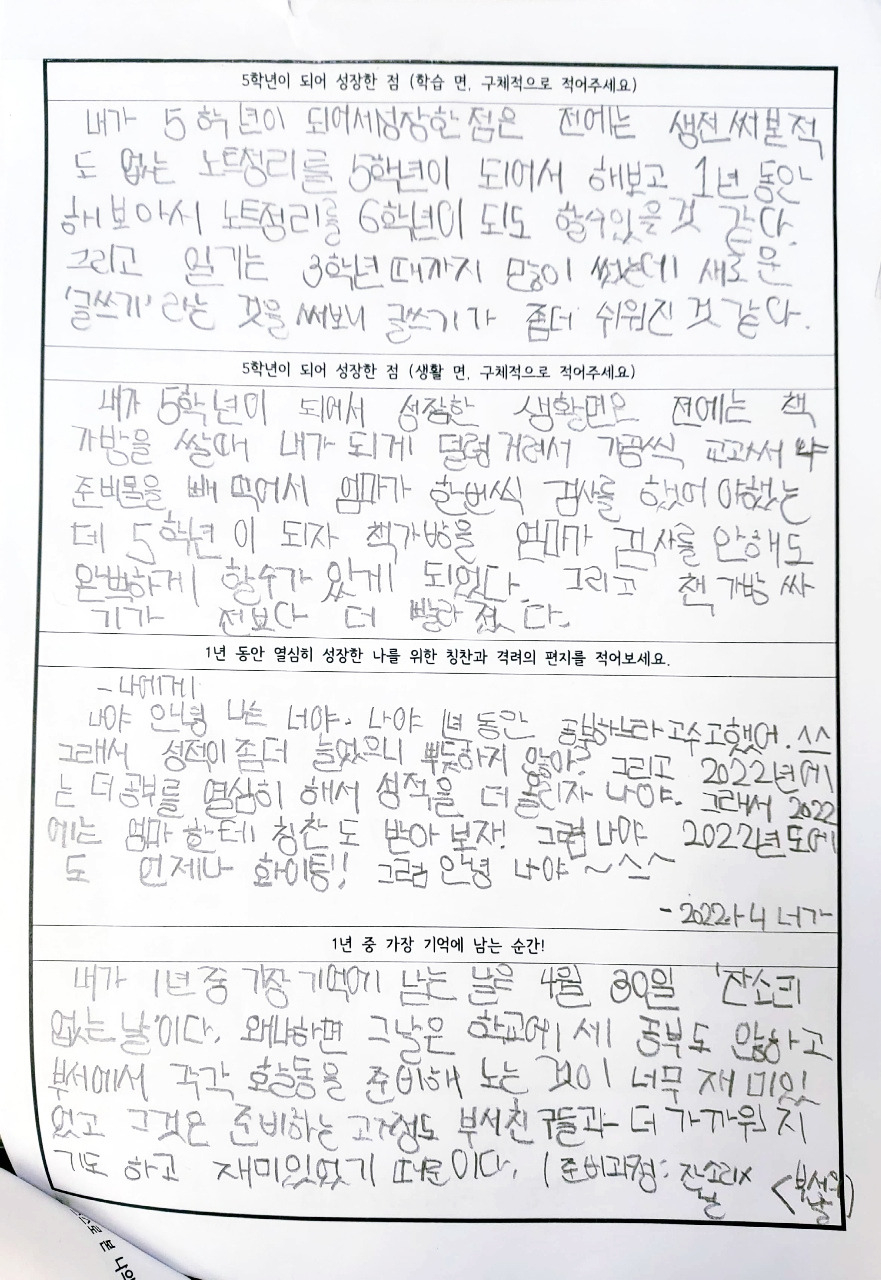 5학년이 되어 성장한 점 (학습 면, 구체적으로 적어주세요)
내가 5학년이 되어서성장한점은 전에는 생전써본적
도 없는 노트정리를 5학년이 되어서 해보고 1년 동안
해보아서 노트정리를 6학년이 되도 할수있을것 같다.
그리고 일기는 3학년때까지 많이 썼는데 새로운
'글쓰기'라는 것을써보니 글쓰기가 좀더 쉬워진것같다.
5학년이 되어 성장한 점 (생활 면, 구체적으로 적어주세요)
내가 5학년이 되어서 성장한 생활면은 전에는 책
가방을 쌀때 내가 되게 덜렁거려서 가끔씩 교과서 나
준비물을 빼먹어서 엄마가 한번씩 검사를 했어야했는
데 5학년이 되자 책가방을 엄마가 검사를안해도
완벽하게 할수가 있게 되었다. 그리고 책가방 싸
기가 전보다 더 빨라졌다.
1년 동안 열심히 성장한 나를 위한 칭찬과 격려의 편지를 적어보세요.
-나에게
나야 안녕 나는 너야. 나야 1년 동안 공부하느라고수고했어.^^
그래서 성적이좀더 늘었으니 뿌듯하지 않아? 그리고 2022년에
는 더공부를 열심히 해서 성적을 더올리자 나야. 그래서 2022
에는 엄마한테 칭찬도 받아보자! 그럼나야 2022년도에
도 언제나 화이팅! 그럼안녕 나야~^^
-2022.1.4 너가
1년 중 가장 기억에 남는 순간!
내가 1년중 가장기억에 남는 날은 4월 30일 '잔소리
없는날'이다. 왜냐하면 그날은 학교에세 공부도 않하고
부서에서 각각 활동을 준비해 노는 것이 너무 재미있
었고 그것은 준비하는 고정도 부서친구들과 더가까워지
기도 하고 재미있었기 때문이다. (준비과정: 잔소리x
날
<부서의
날>
본 나의